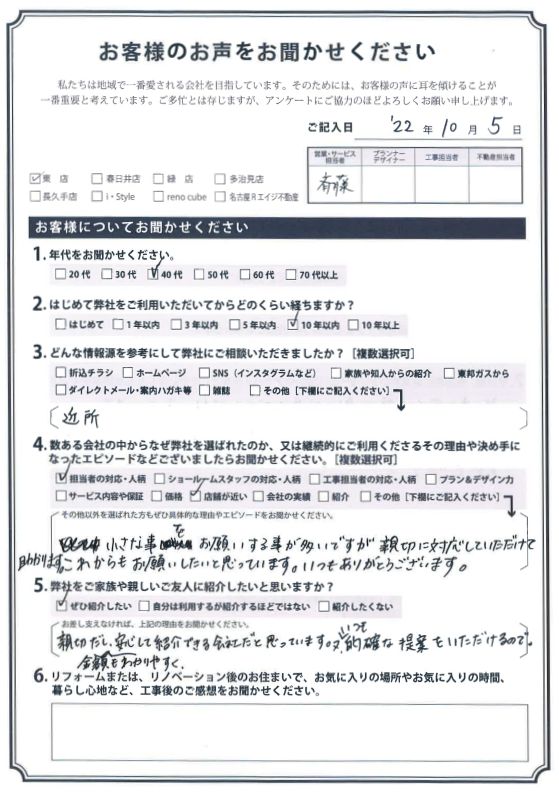 お客様のお声をお聞かせください
私たちは地域で一番愛される会社を目指しています。そのためには、お客様の声に耳を傾けることが
一番重要と考えています。ご多忙とは存じますが、アンケートにご協力のほどよろしくお願い申し上げます。
ご記入日 '22 年 10 月 5 日
営業・サービス担当者 プランナーデザイナー 工事担当者 不動産担当者
斉藤
☑東 店 □春日井店 □緑 店 □多治見店
□長久手店 □i・Style □reno cube □名古屋Rエイジ不動産
お客様についてお聞かせください
1. 年代をお聞かせください。
□20代 □30代 ☑40代 □50代 □60代 □70代以上
2. はじめて弊社をご利用いただいてからどのくらい経ちますか？
□はじめて □1年以内 □3年以内 □5年以内 ☑10年以内 □10年以上
3. どんな情報源を参考にして弊社にご相談いただきましたか？［複数選択可］
□折込チラシ □ホームページ □SNS（インスタグラムなど） □家族や知人からの紹介 □東邦ガスから
□ダイレクトメール・案内ハガキ等 □雑誌 □その他［下欄にご記入ください］
近所
4. 数ある会社の中からなぜ弊社を選ばれたのか、又は継続的にご利用くださるその理由や決め手に
なったエピソードなどございましたらお聞かせください。［複数選択可］
☑担当者の対応・人柄 □ショールームスタッフの対応・人柄 □工事担当者の対応・人柄 □プラン＆デザイン力
□サービス内容や保証 □価格 ☑店舗が近い □会社の実績 □紹介 □その他［下欄にご記入ください］
その他以外を選ばれた方もぜひ具体的な理由やエピソードをお聞かせください。
小さな事をお願いする事が多いですが 親切に対応していただけて
助かります。これからもお願いしたいと思っています。いつもありがとうございます。
5. 弊社をご家族や親しいご友人に紹介したいと思いますか？
☑ぜひ紹介したい □自分は利用するが紹介するほどではない □紹介したくない
お差し支えなければ、上記の理由をお聞かせください。
親切だし、安心して紹介できる会社だと思っています。又いつも的確な提案をいただけるので。
金額もわかりやすく、
6. リフォームまたは、リノベーション後のお住まいで、お気に入りの場所やお気に入りの時間、
暮らし心地など、工事後のご感想をお聞かせください。